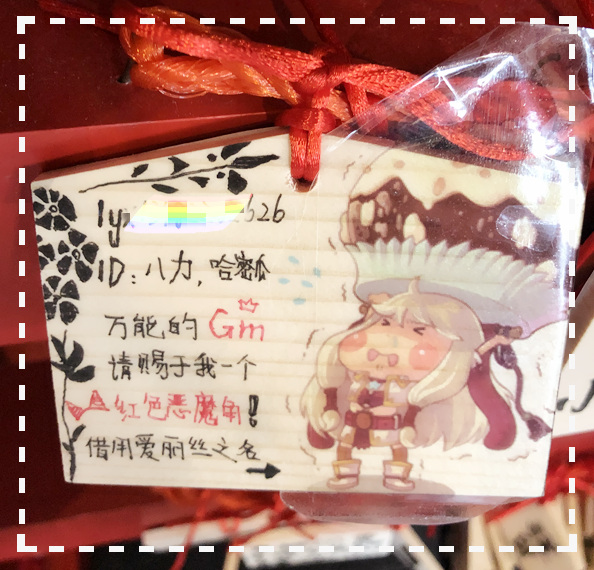 ly 626
ID：八力，哈密瓜
万能的 Gm
请赐于我一个
红色恶魔角！
借用爱丽丝之名